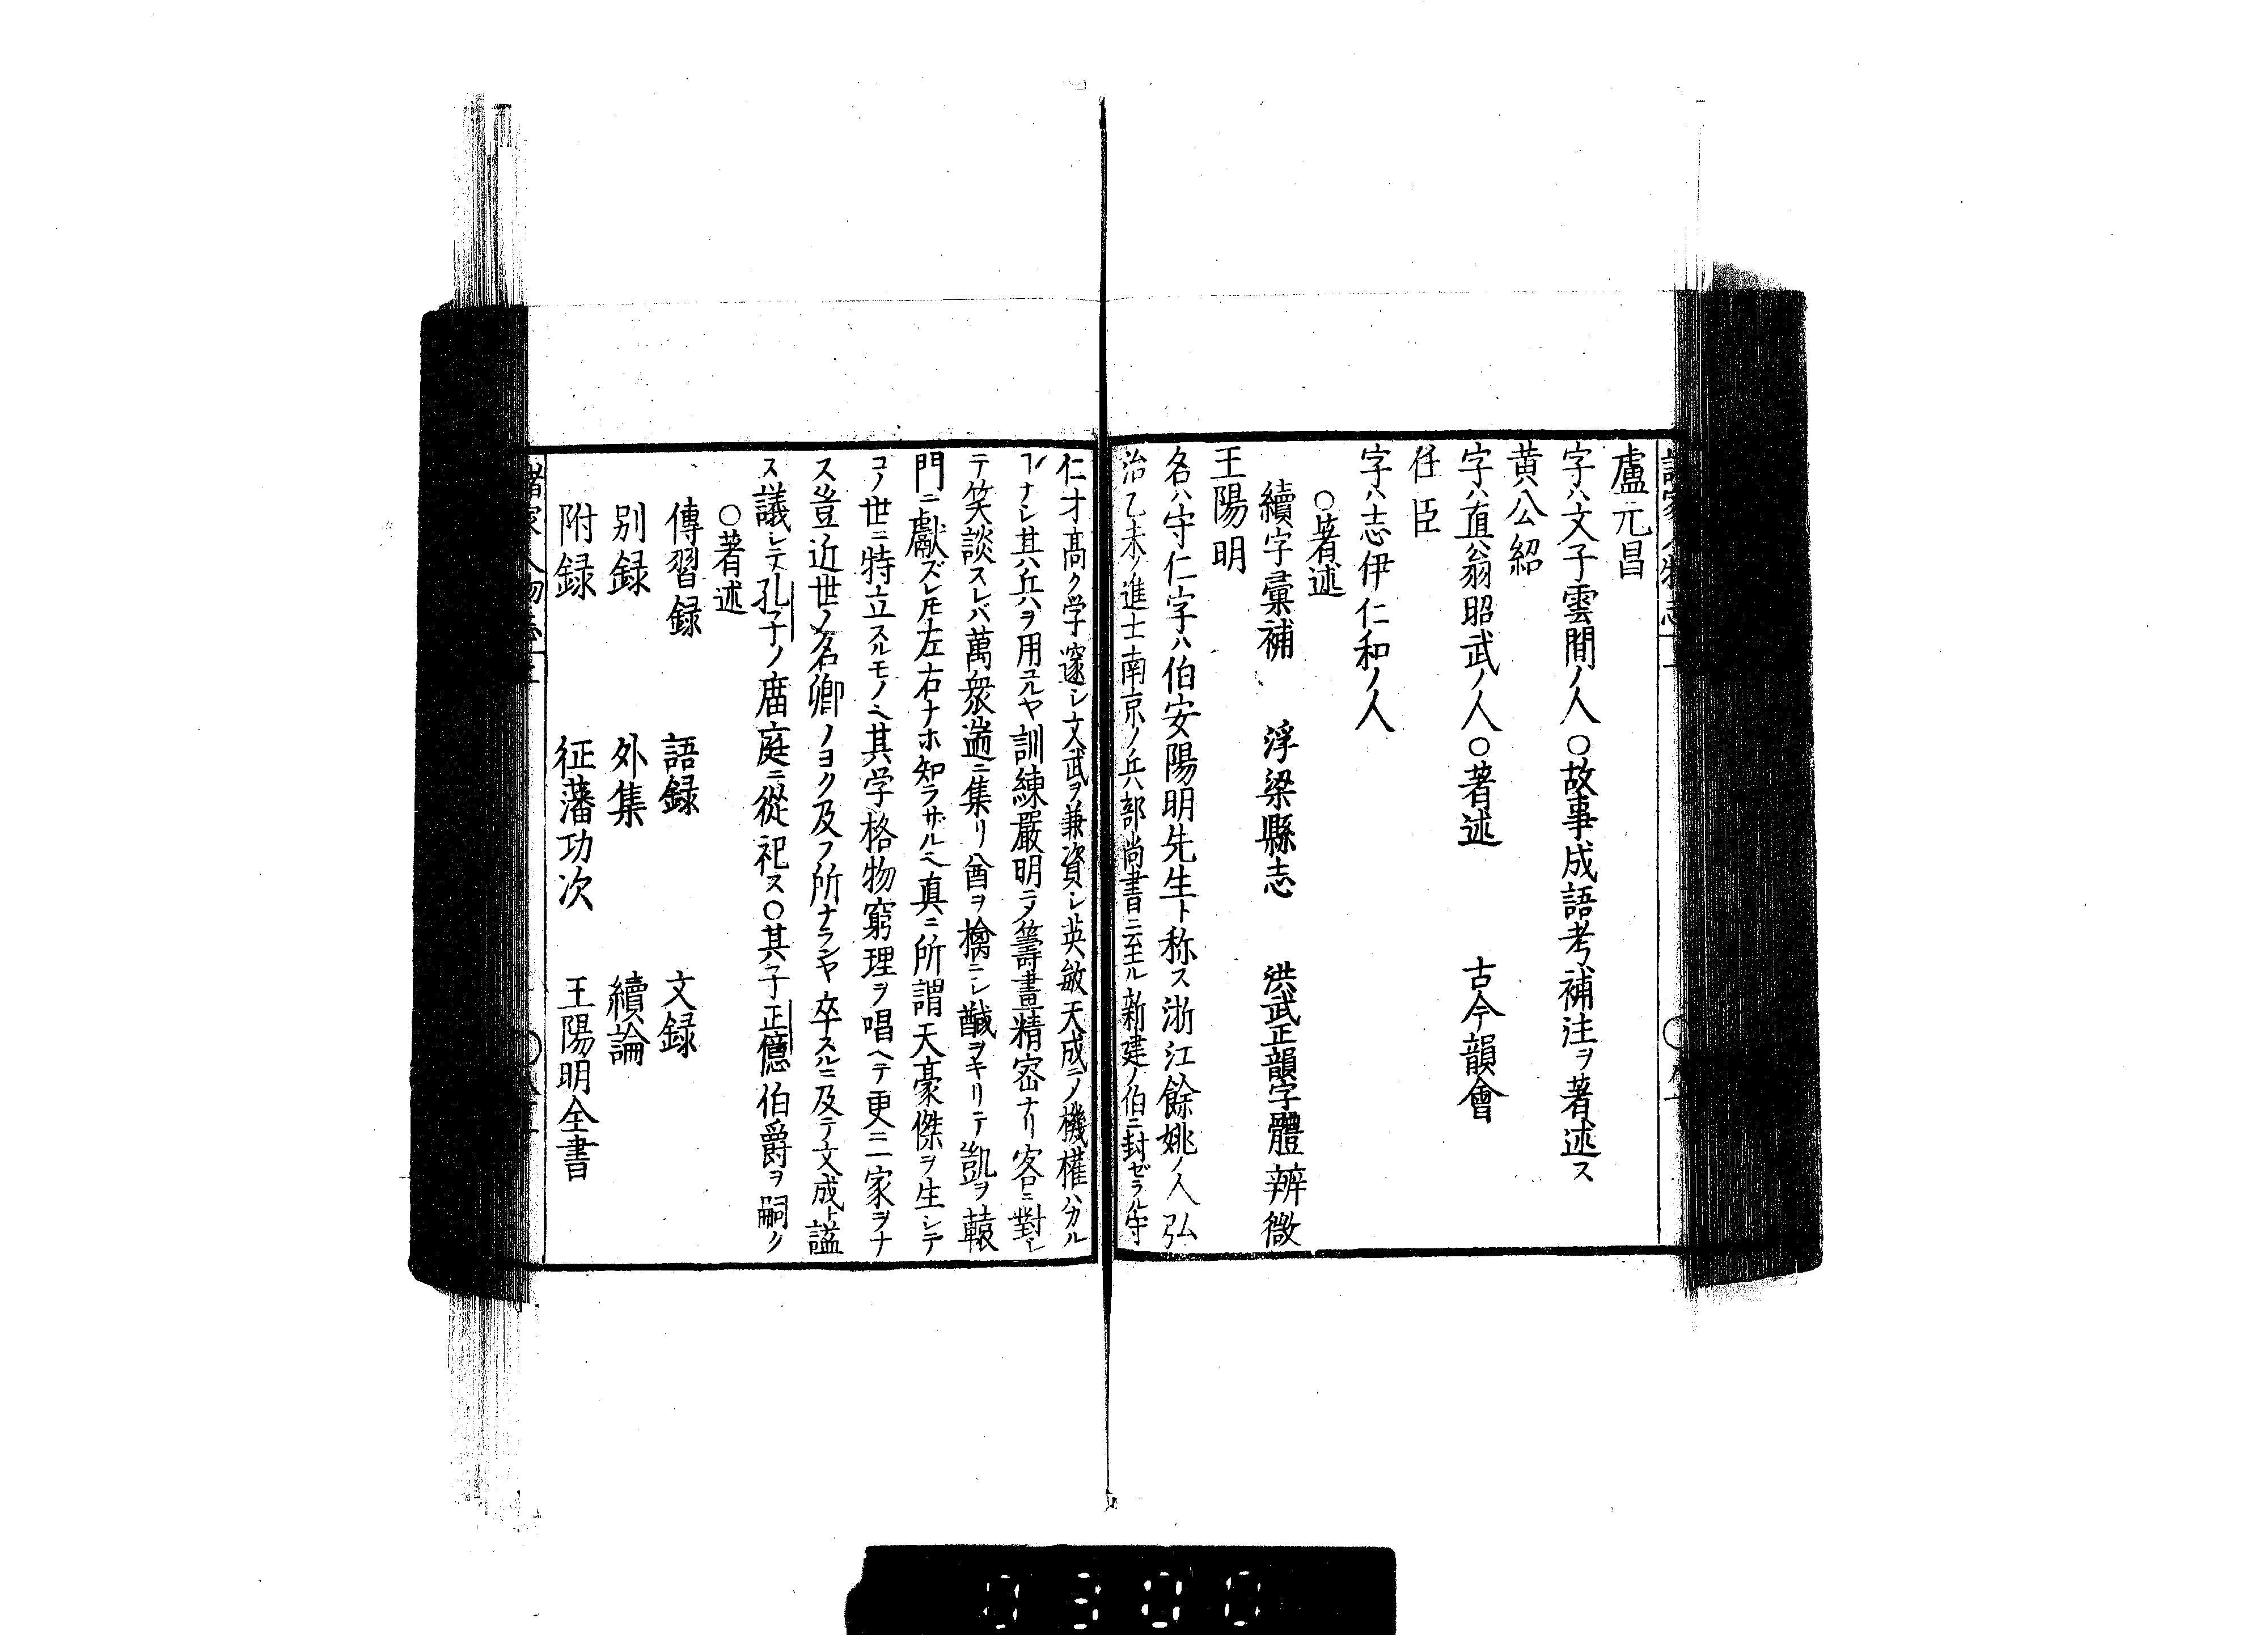 盧元昌
字ハ文子雲間ノ人○故事成語考補注ヲ著述ス
黄公紹
字ハ直翁昭武ノ人○著述　古今韻會
任臣
字ハ志伊仁和ノ人
○著述
續字彙補　浮梁縣志　洪武正韻字體辨微
王陽明
名ハ守仁字ハ伯安陽明先生ト称ス浙江餘姚ノ人弘
治乙未ノ進士南京ノ兵部尚書ニ至ル新建ノ伯ニ封ゼラル守
仁才高ク学邃シ文武ヲ兼資シ英敏天成ニメ機権ハカル
ヿナシ其兵ヲ用ユルヤ訓練嚴明ニメ籌畫精密ナリ客ニ對シ
テ笑談スレバ萬衆遄ニ集リ酋ヲ擒ニシ馘ヲキリテ凱ヲ轅
門ニ獻ズレ𪜈左右ナホ知ラザル也真ニ所謂天豪傑ヲ生シテ
コノ世ニ特立スルモノ也其学格物窮理ヲ唱ヘテ更ニ一家ヲナ
ス豈近世ノ名卿ノヨク及フ所ナランヤ卒スルニ及テ文成ト謚
ス議シテ孔子ノ庿庭ニ從祀ス○其子正億伯爵ヲ嗣ク
○著述
傳習録　語録　文録
别録　外集　續論
附録　征藩功次　王陽明全書
諸家人物志
0300